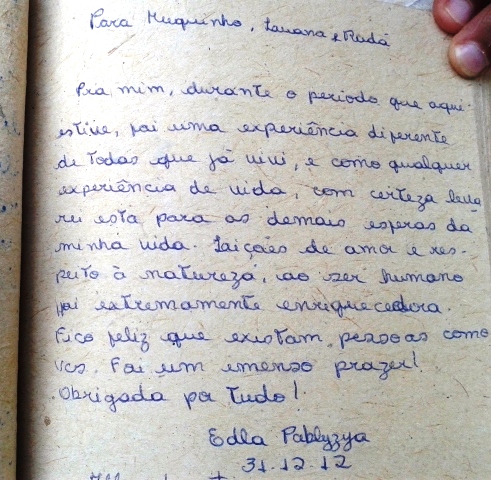 Para Huguinho, Lauana e Rudá
Pra mim, durante o período que aqui
estive, foi uma experiência diferente
de todas que já vivi, e como qualquer
experiência de vida, com certeza leva
rei esta para as demais esperas da
minha vida. Laições de amor e res-
peito à natureza, ao ser humano
foi extremamente enriquecedora.
Fico feliz que existam pessoas como
vcs. Foi um emenso prazer!
Obrigada por tudo!
Edla Pablyzya
31.12.12